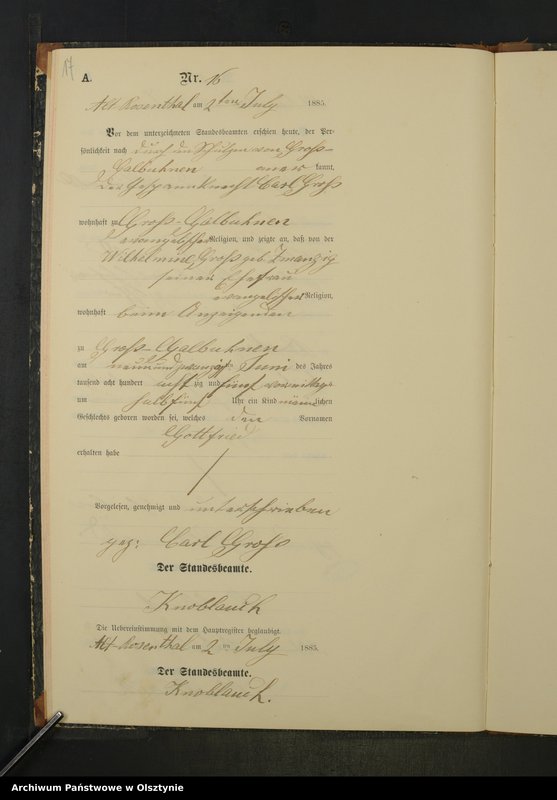 17
A. Nr. 16
Alt-Rosenthal am 2ten July 1885.
Vor dem unterzeichneten Standesbeamten erschien heute, der Per-
sönlichkeit nach durch den Schulzen von Groß-
Galbuhnen aner kannt,
der Gespannknecht Carl Groß
wohnhaft zu Groß-Galbuhnen
evangelischer Religion, und zeigte an, daß von der
Wilhelmine Groß geb. Zwanzig
seiner Ehefrau
evangelischer Religion,
wohnhaft beim Anzeigenden
zu Groß-Galbuhnen
am neunundzwanzigsten Juni des Jahres
tausend acht hundert achtzig und fünf vormittags
um halb fünf Uhr ein Kind männlichen
Geschlechts geboren worden sei, welches den Vornamen
Gottfried
erhalten habe
Vorgelesen, genehmigt und unterschrieben
gez: Carl Groß
Der Standesbeamte.
Knoblauch
Die Uebereinstimmung mit dem Hauptregister beglaubigt.
Alt-Rosenthal am 2ten July 1885.
Der Standesbeamte.
Knoblauch.
Archiwum Państwowe w Olsztynie